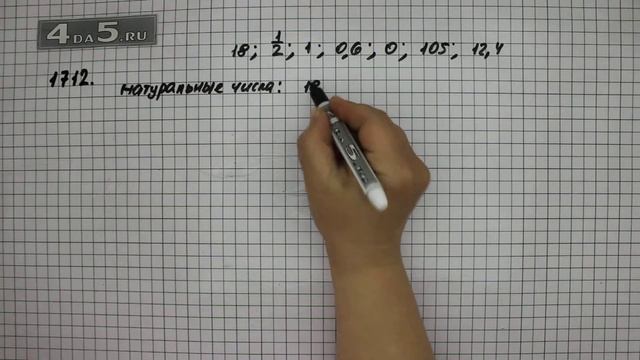 4DA5.RU
18; 1/2; 1; 0,6; 0; 105; 12,4
1712. натуральные числа: 18
5